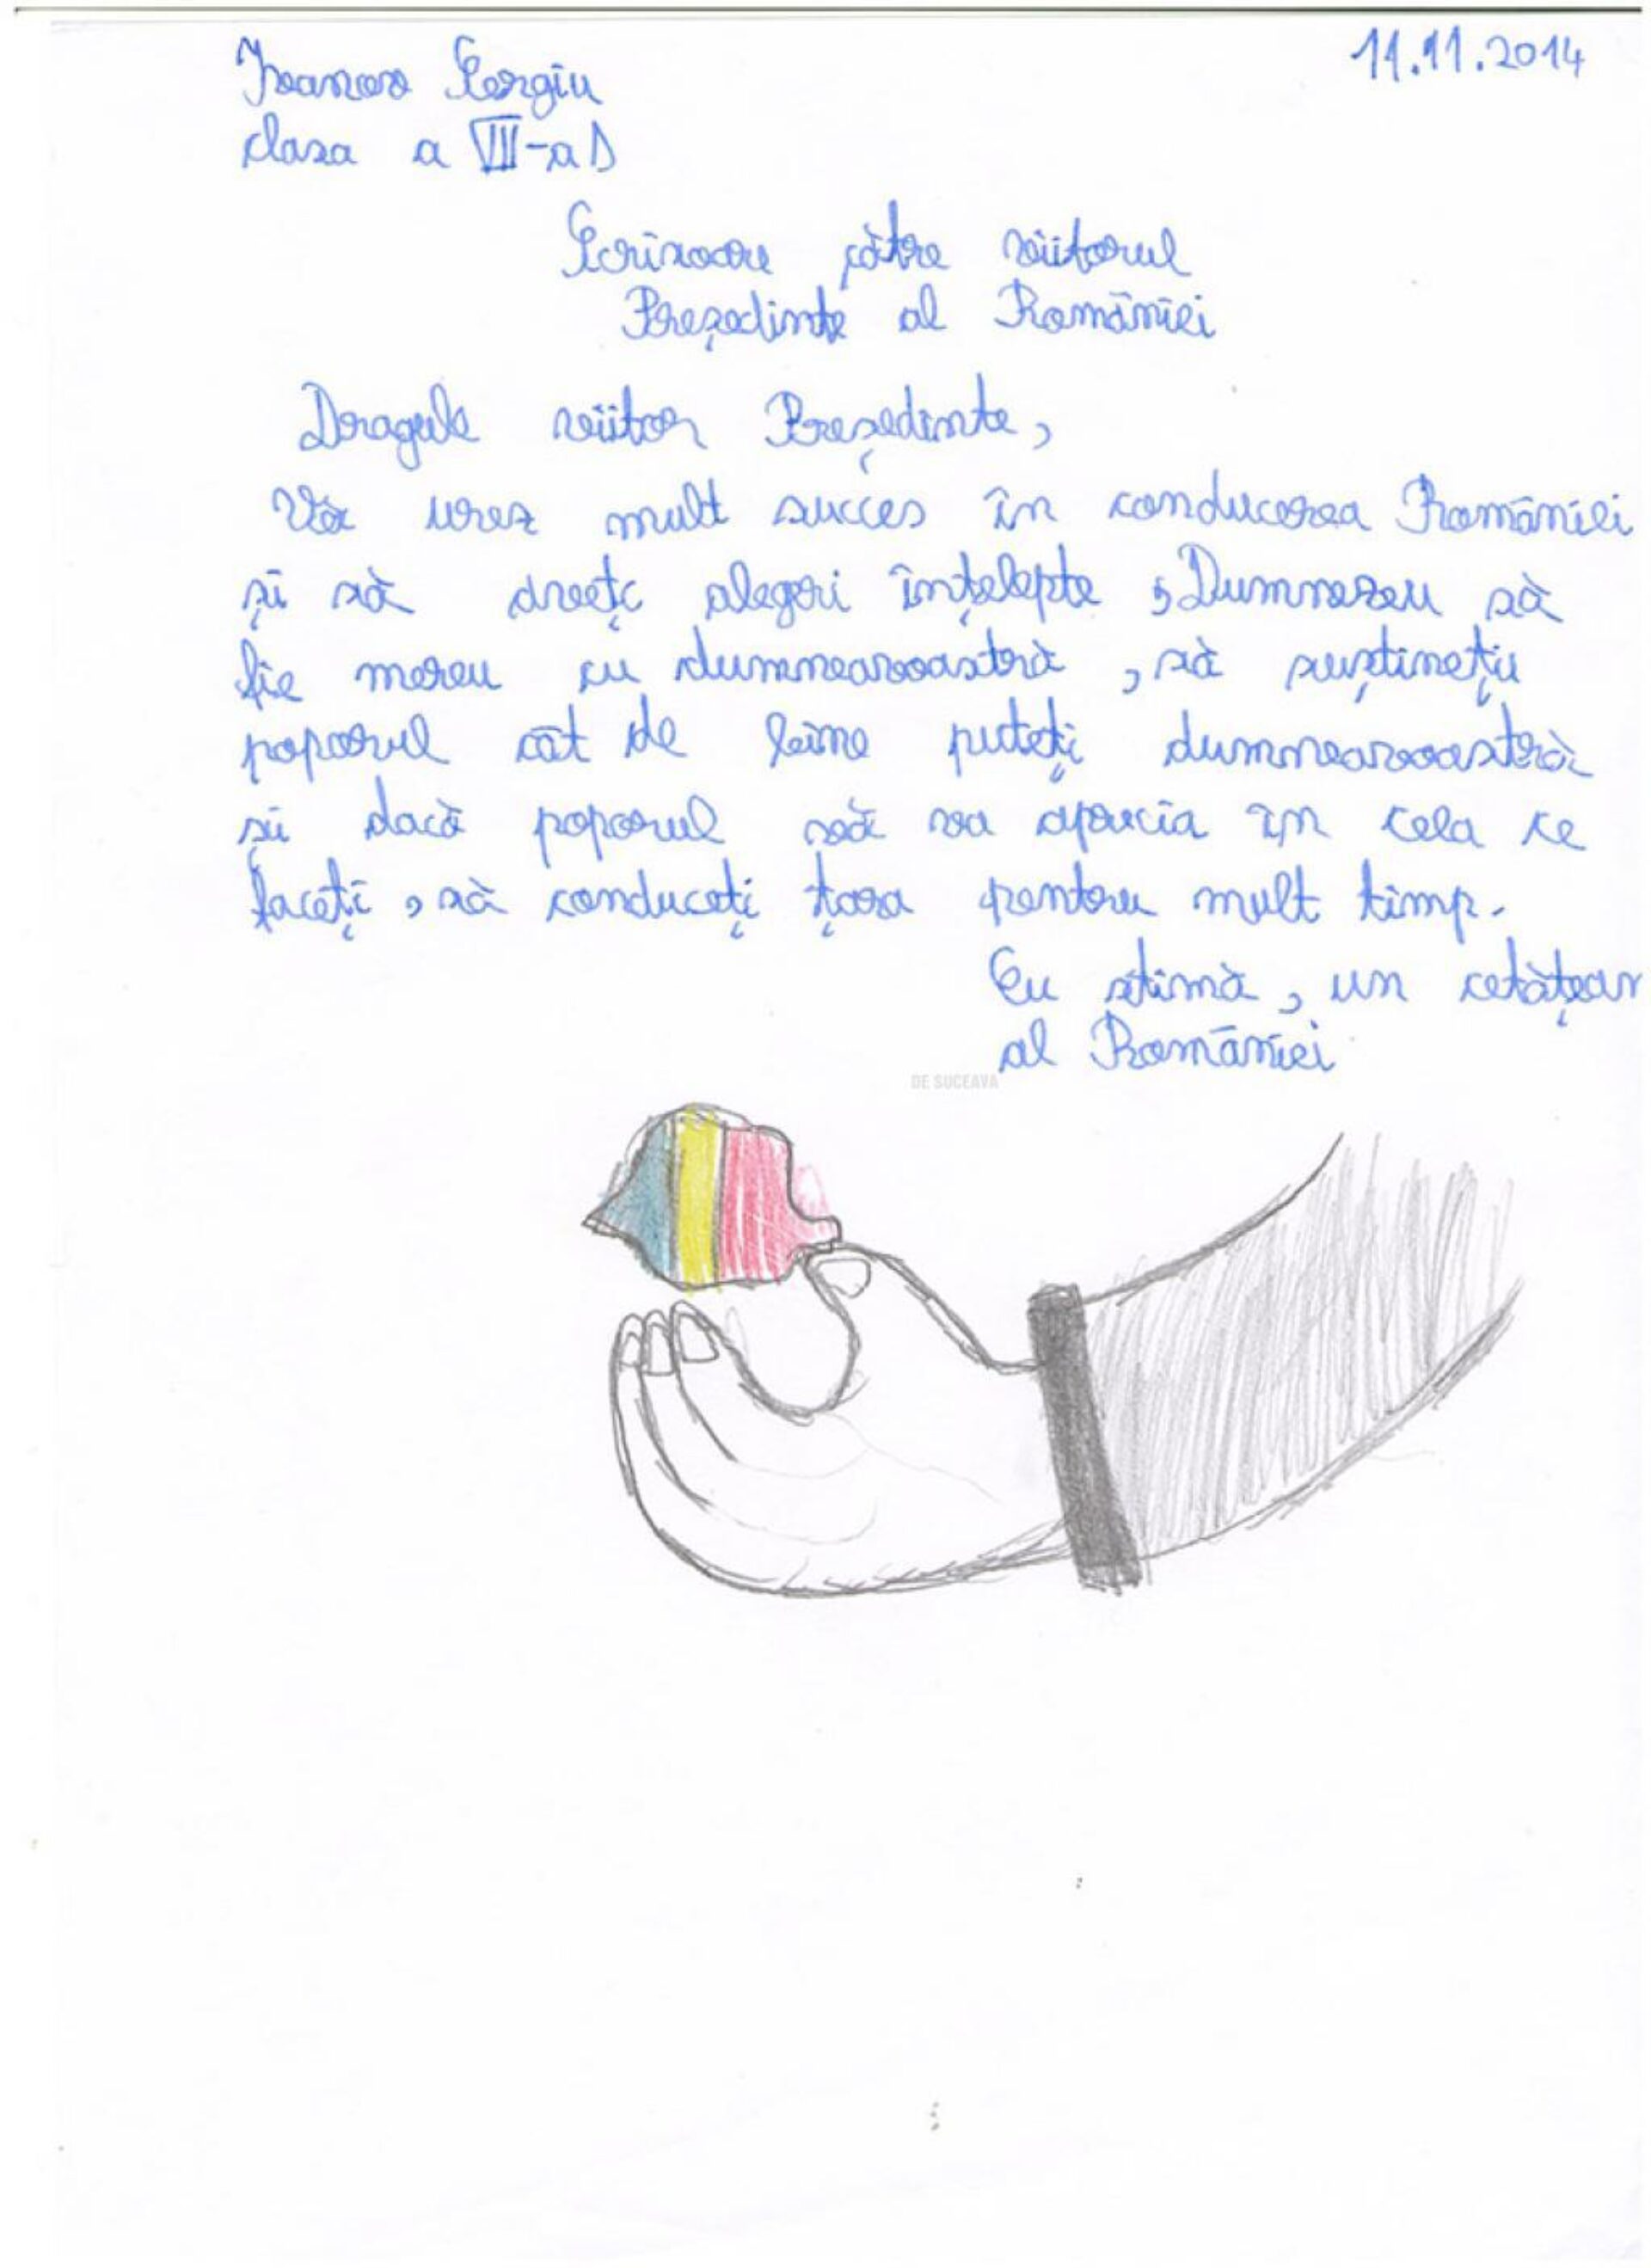 Ivanov Sergiu
11.11.2014
clasa a VII-a D
Scrisoare către viitorul
Președinte al României
Dragule viitor Președinte,
Vă urez mult succes în conducerea României
și să aveți alegeri înțelepte, Dumnezeu să
fie mereu cu dumneavoastră, să susținețu
poporul cât de bine puteți dumneavoastră
și dacă poporul vă va aprecia în cela ce
faceți, să conduceți țara pentru mult timp.
Cu stimă, un cetățean
al României
DE SUCEAVA